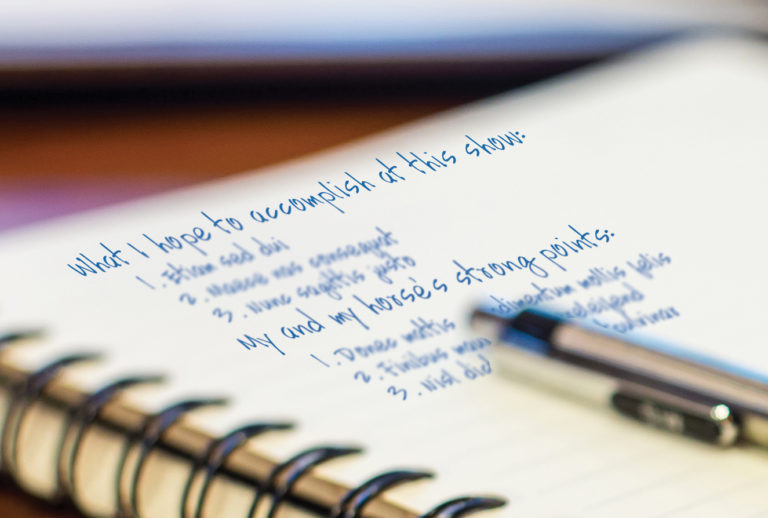 What I hope to accomplish at this show:
1. Etiam sed dui
2. Maece nas consequat
3. Nunc sagittis justo
My and my horse's strong points:
1. Donec mattis dimentum mollis felis
2. Finibus mau eleifend
3. Nisl dic pulvinar